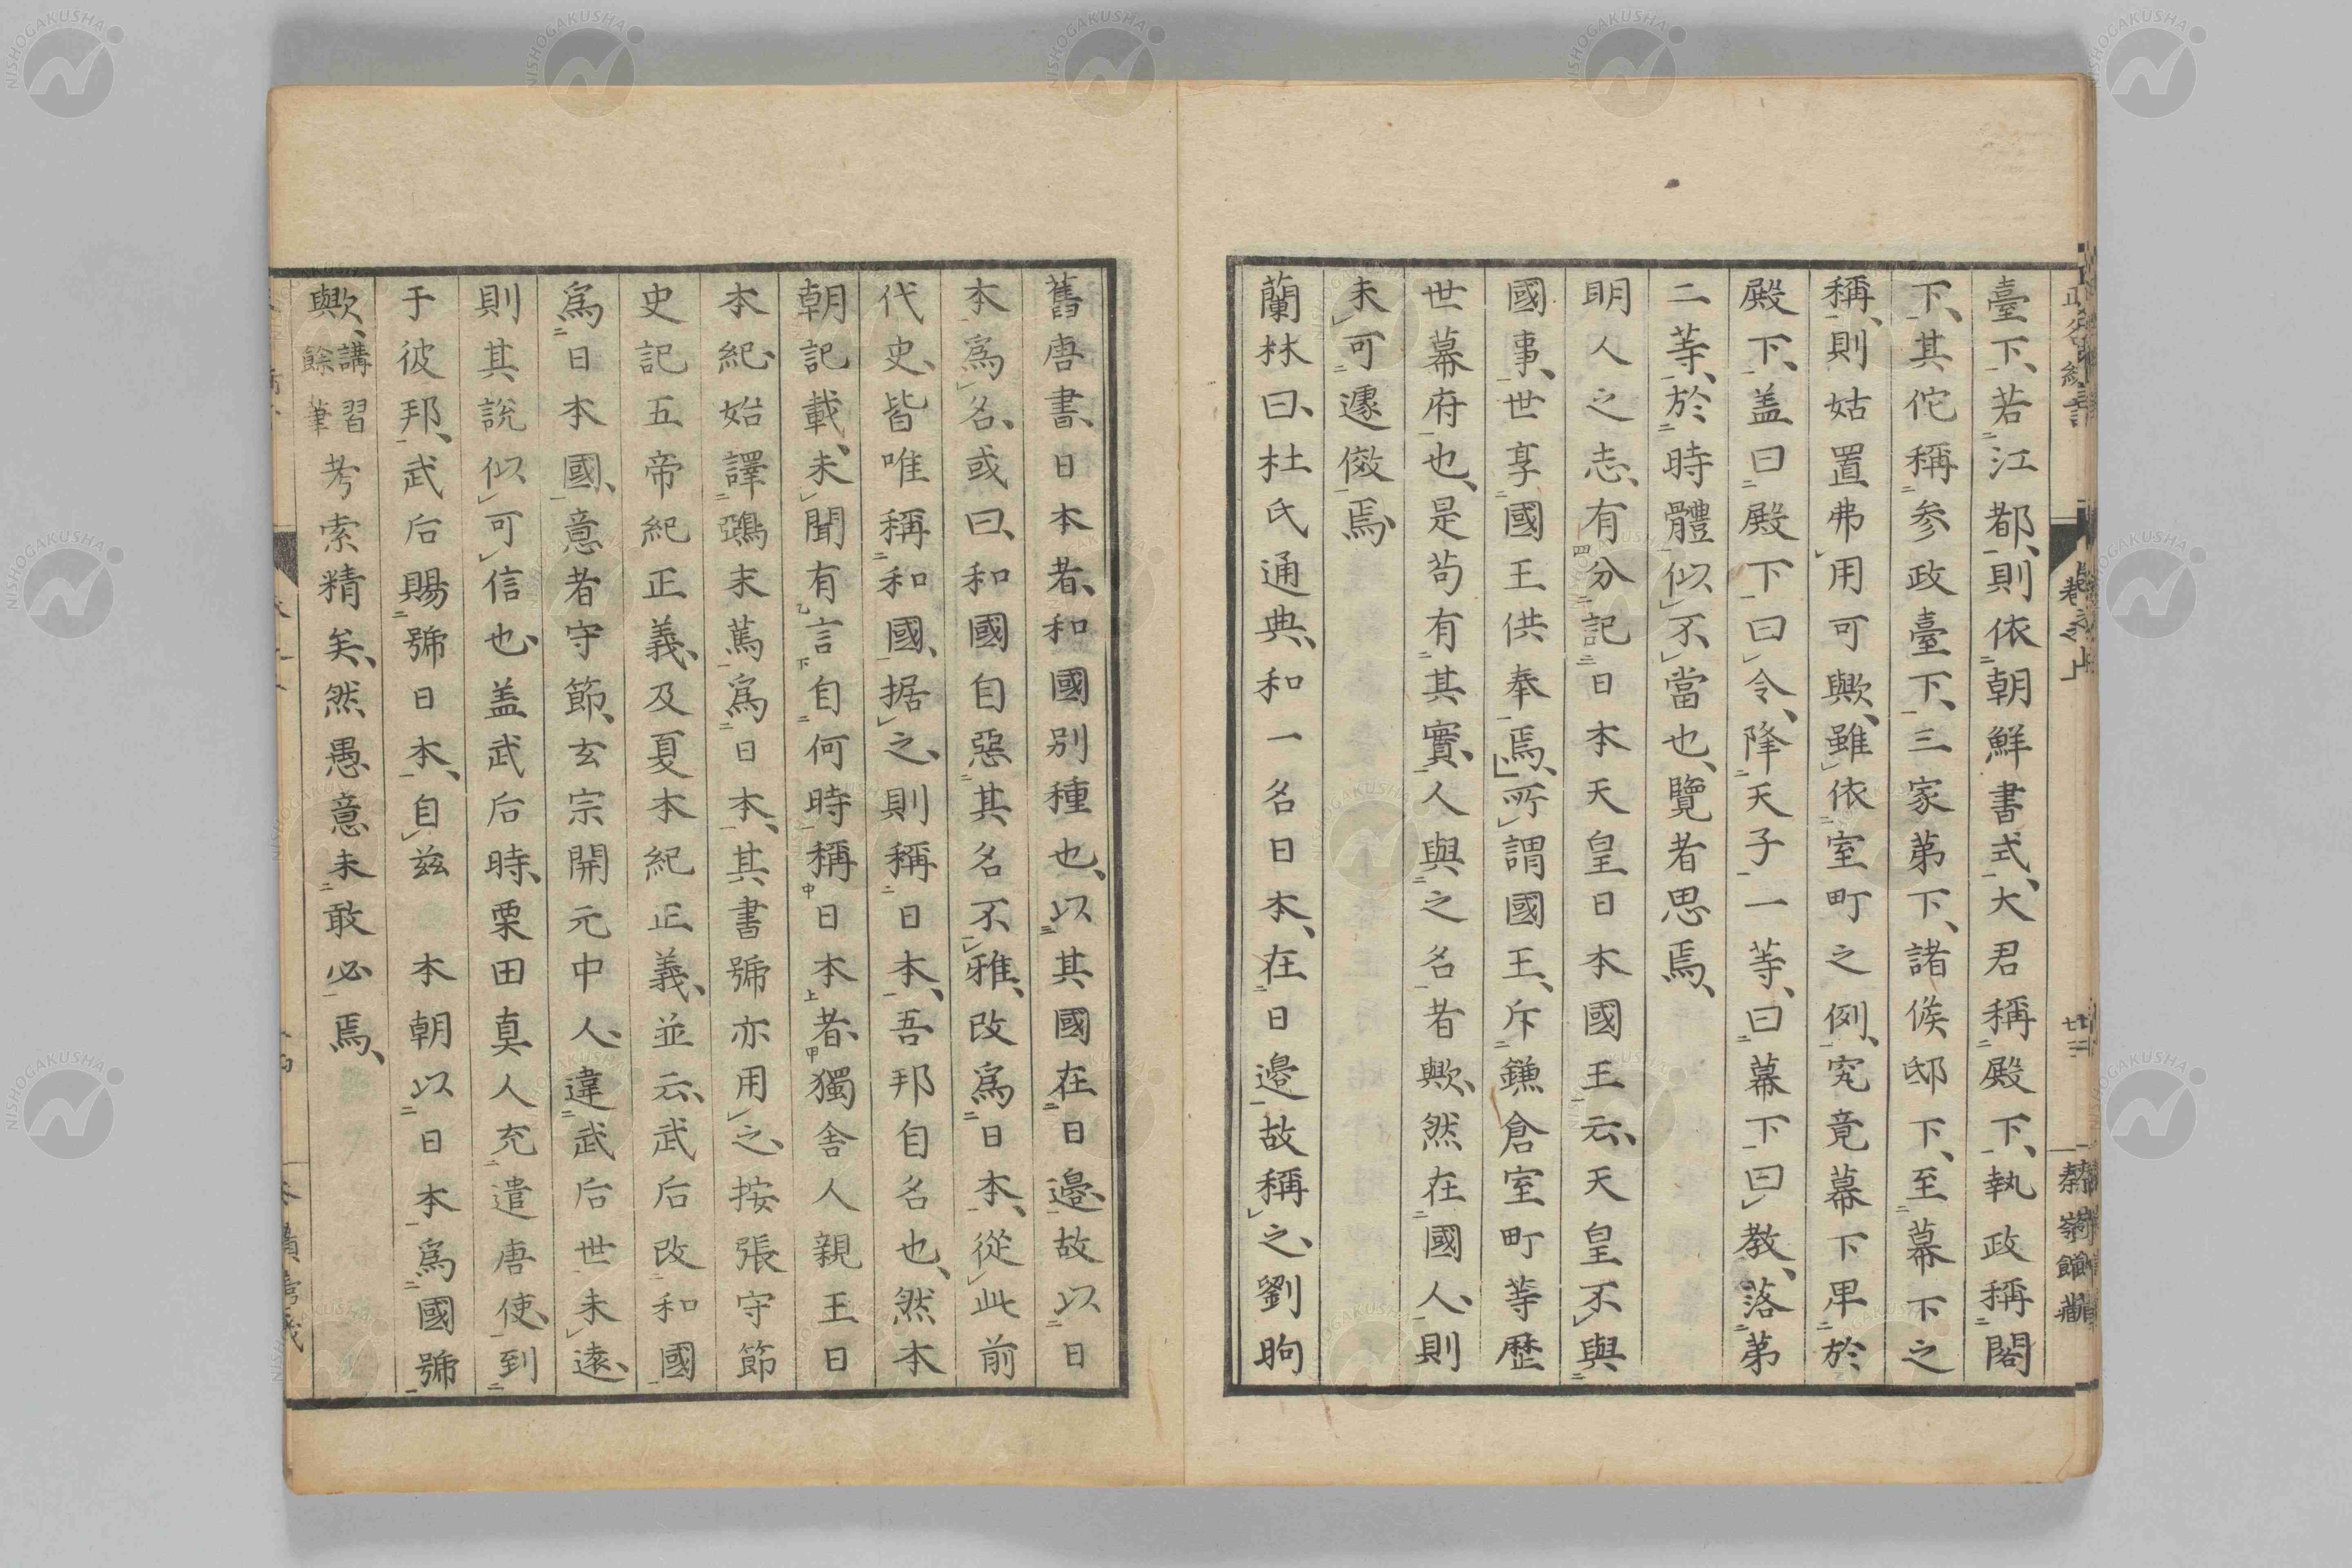 臺下、若江都、則依朝鮮書式、大君稱殿下、執政稱閣
下、其佗稱參政臺下、三家第下、諸候邸下、至幕下之
稱、則姑置弗用可歟、雖依室町之例、究竟幕下卑於
殿下、盖曰殿下曰令、降天子一等、曰幕下曰教、落第
二等、於時體似不當也、覽者思焉、
明人之志、有分記日本天皇日本國王云、天皇不與
國事、世享國王供奉焉、所謂國王、斥鎌倉室町等歷
世幕府也、是苟有其實、人與之名者歟、然在國人、則
未可遽傚焉、
蘭林曰、杜氏通典、和一名日本、在日邉故稱之、劉昫
舊唐書、日本者、和國別種也、以其國在日邉、故以日
本爲名、或曰、和國自惡其名不雅、改爲日本、從此前
代史、皆唯稱和國、据之、則稱日本、吾邦自名也、然本
朝記載、未聞有言自何時稱日本者、獨舎人親王日
本紀、始譯鵶末蔦爲日本、其書號亦用之、按張守節
史記五帝紀正義、及夏本紀正義、並云、武后改和國
爲日本國、意者守節、玄宗開元中人、違武后世未遠、
則其說似可信也、盖武后時、栗田真人充遣唐使、到
于彼邦、武后賜號日本、自茲 本朝以日本爲國號
歟、講習餘筆考索精矣、然愚意未敢必焉、